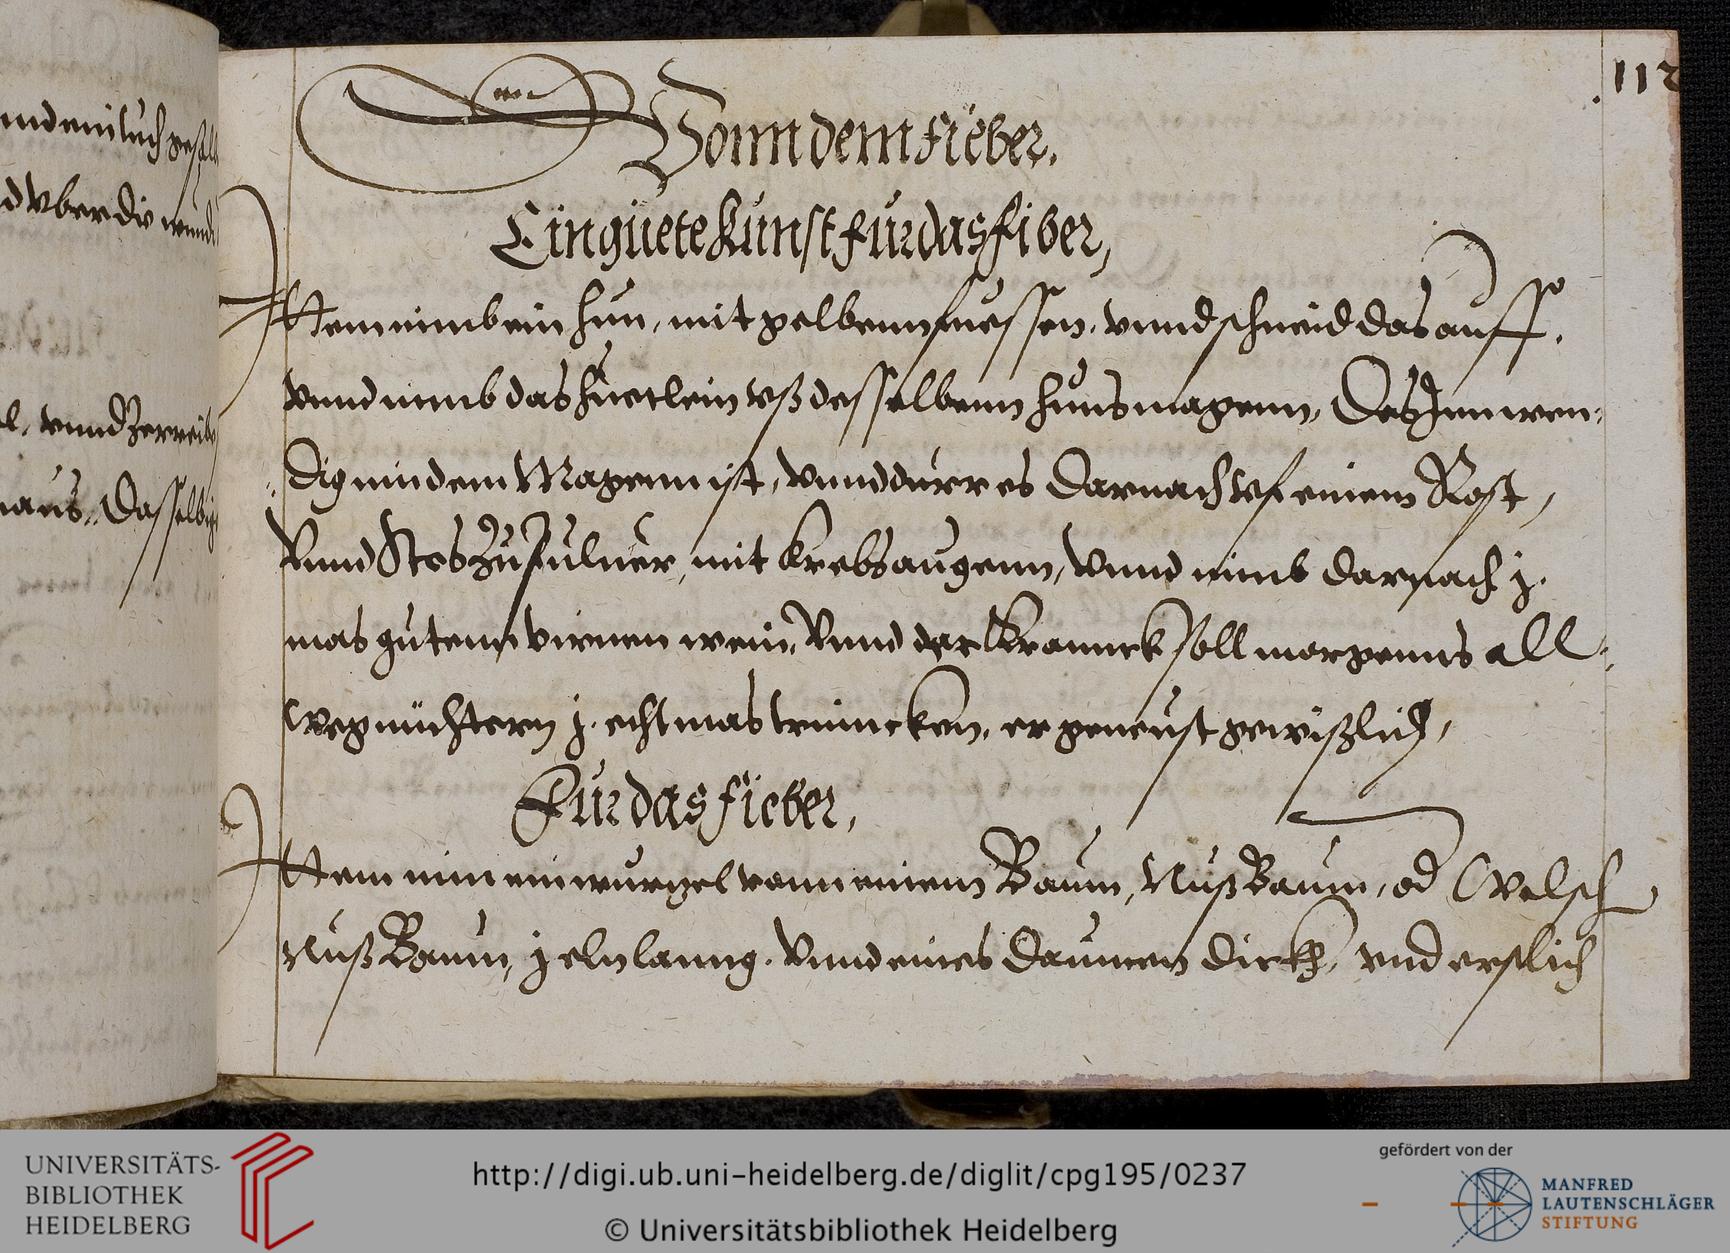 112
Vonn dem fieber.
Ein guete kunst fur das fiber,
Item nimb ein hun, mit gelbenn fuessen, vnnd schneid das auff,
vnnd nimb das heutlein vß desselbenn huns magenn, Das Innwen-
dig inn dem Magenn ist, vnnd durr es darnach vf einem Rost,
Vnnd Stos zu Puluer, mit krebs augenn, Vnnd nimb darnach j.
mas gutenn virnen wein, Vnnd der krannck soll morgenns all-
weg nüchtern j. echtmas trinncken, er geneust gewißlich,
Fur das fieber,
Item nim ein wurgel vonn einem Baum, Nußbaum, od Welsch
Nuß Baum, j eln lanng. Vnnd eines daumen dickh, vnd erstlich
vber die wund
vnnd Zerreib
aus, Dasselbig
UNIVERSITÄTS-
BIBLIOTHEK
HEIDELBERG
http://digi.ub.uni-heidelberg.de/diglit/cpg195/0237
© Universitätsbibliothek Heidelberg
gefördert von der
MANFRED
LAUTENSCHLÄGER
STIFTUNG